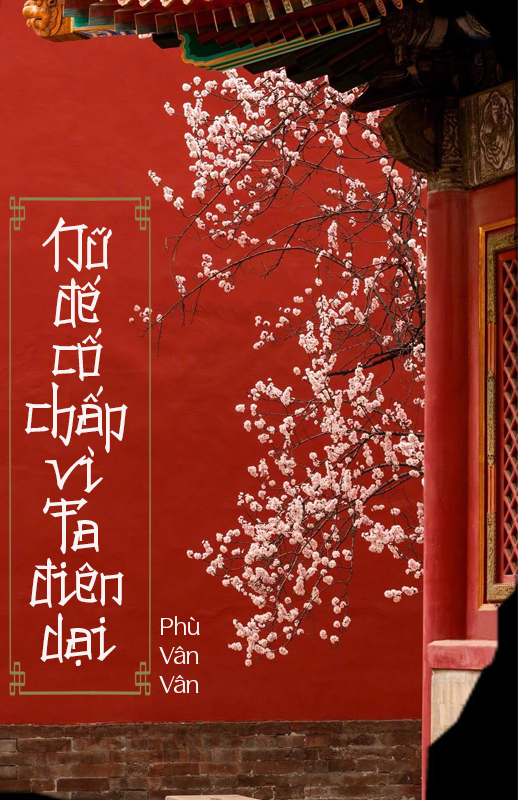 Nữ
đế
cố
chấp
vì
Ta
điên
dại
Phù
Vân
Vân